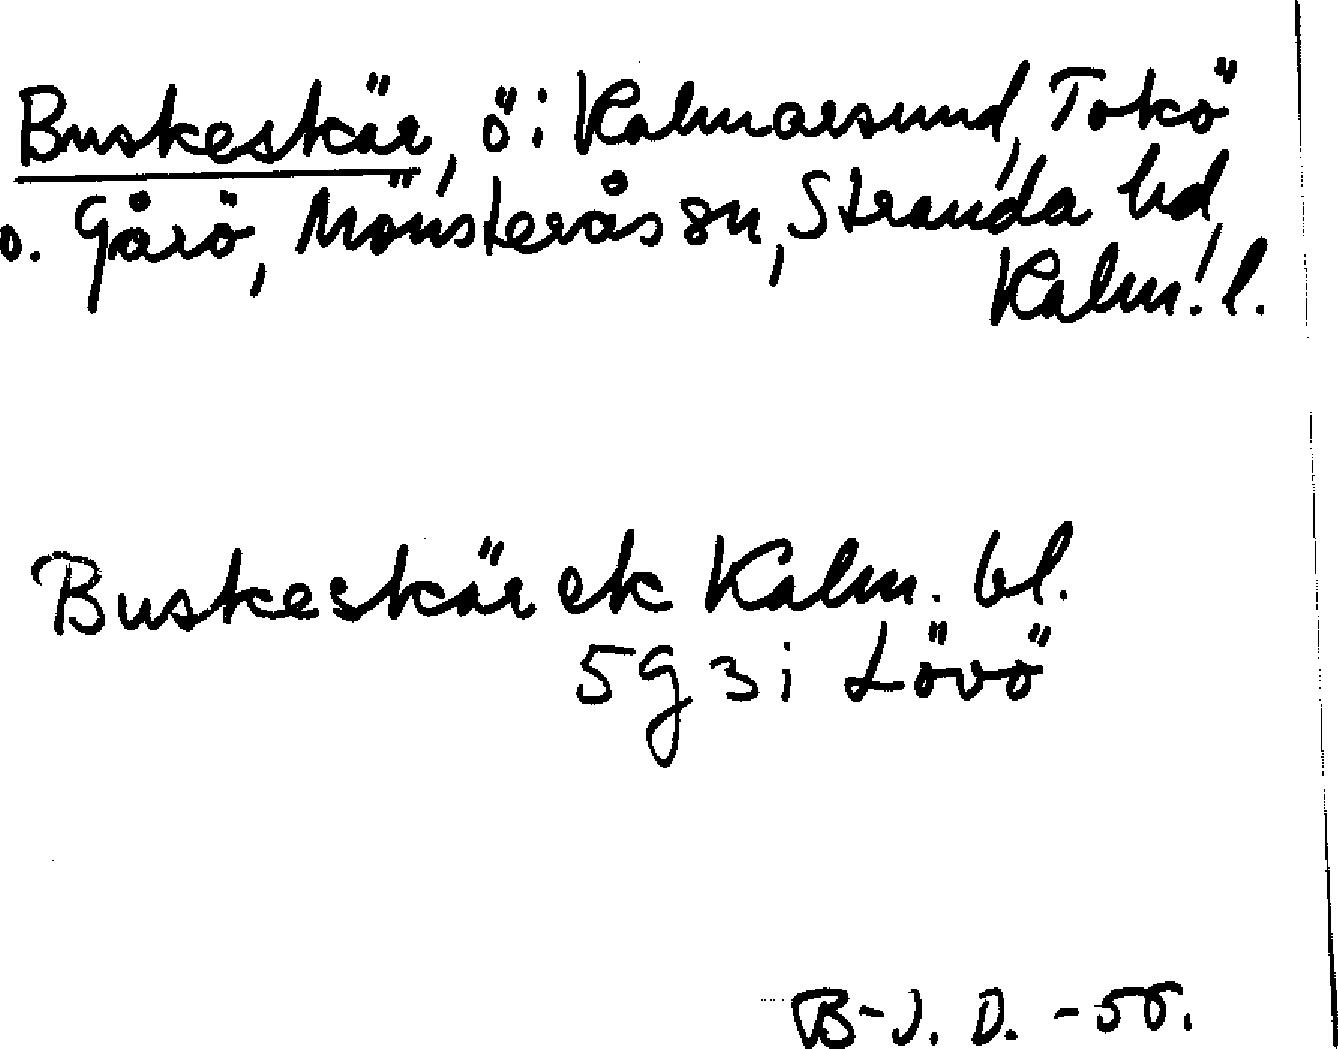 Buskeskär, ö i Kalmarsund, Tokö
o. Gårö, Mönsterås sn, Stranda hd,
Kalm. l.
Buskeskär ek Kalm. bl.
5g 3i Lövö
B-J. D. -55.